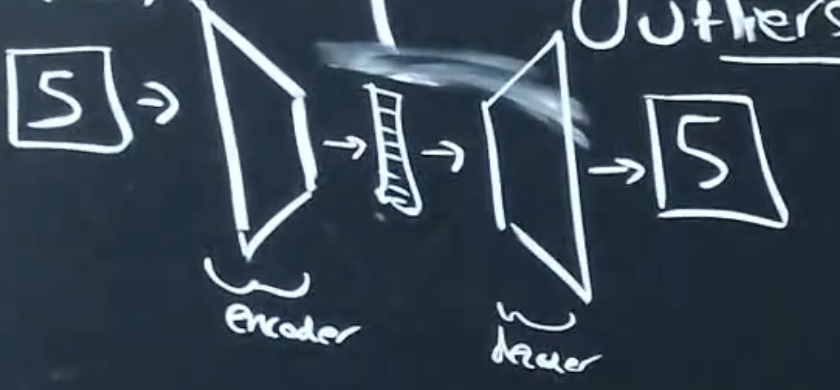 Outliers
5
5
encoder
decoder